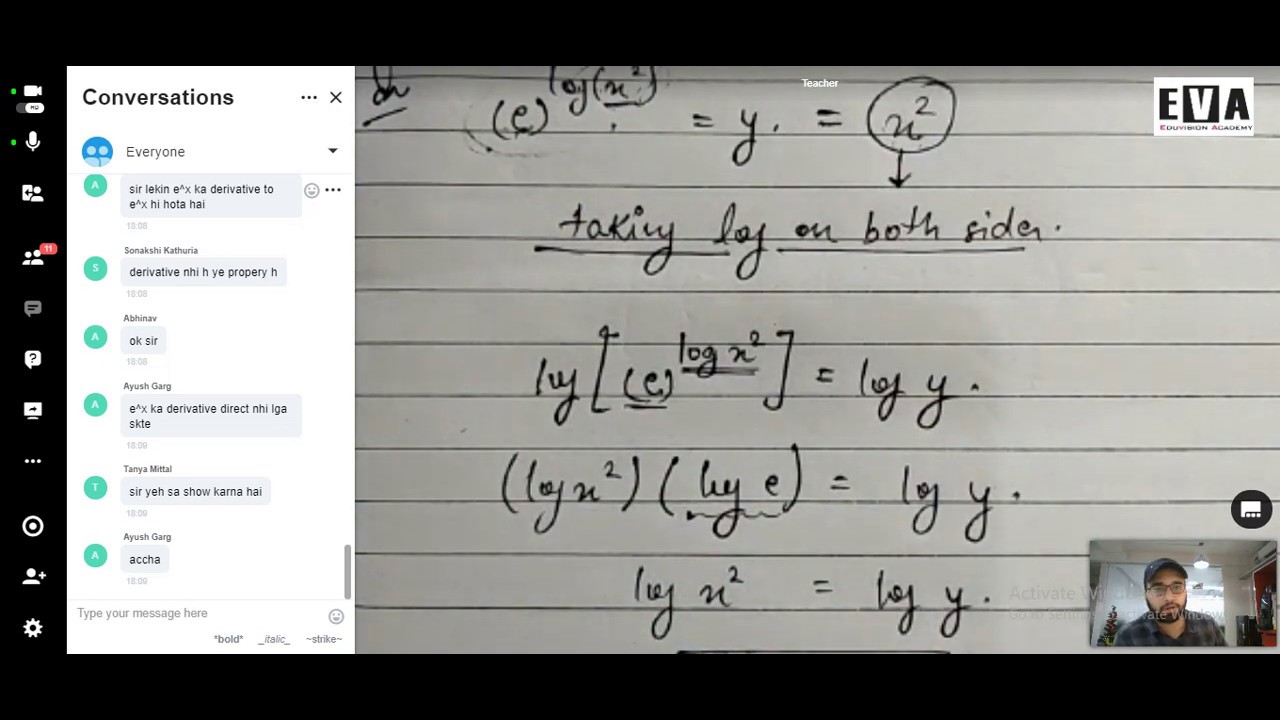 Conversations
Everyone
sir lekin e^x ka derivative to
e^x hi hota hai
18:08
Sonakshi Kathuria
derivative nhi h ye propery h
18:08
Abhinav
ok sir
18:08
Ayush Garg
e^x ka derivative direct nhi lga
skte
18:09
Tanya Mittal
sir yeh sa show karna hai
18:09
Ayush Garg
accha
18:09
Type your message here
*bold* _italic_ ~strike~
11
HD
A
S
A
A
T
A
Teacher
EVA
EDUVISION ACADEMY
(e)^log(x²) = y. = x²
taking log on both sides.
log[(e)^log x²] = log y.
(log x²)(log e) = log y.
log x² = log y.